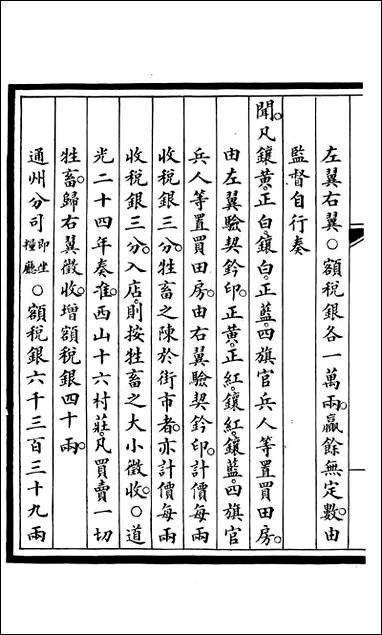 左翼右翼○額税銀各一萬兩。贏餘無定數。由
監督自行奏
聞。凡鑲黃。正白。鑲白。正藍。四旗官兵人等置買田房。
由左翼驗契鈐印。正黃。正紅。鑲紅。鑲藍。四旗官
兵人等置買田房。由右翼驗契鈐印。計價每兩
收税銀三分。牲畜之陳於街市者。亦計價每兩
收税銀三分。入店。則按牲畜之大小徵收。○道
光二十四年奏准。西山十六村莊。凡買賣一切
牲畜。歸右翼徵收。增額税銀四十兩。
通州分司即坐糧廳○額税銀六千三百三十九兩